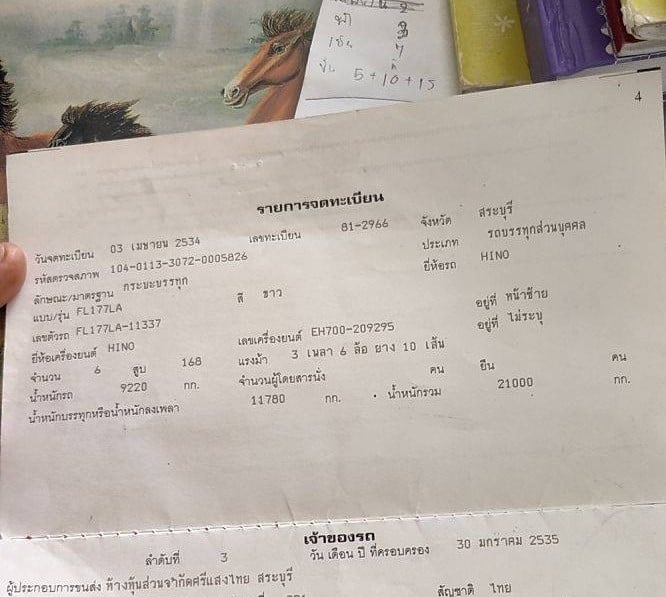 5+10+15
4
รายการจดทะเบียน
วันจดทะเบียน 03 เมษายน 2534 เลขทะเบียน 81-2966 จังหวัด สระบุรี
รหัสตรวจสภาพ 104-0113-3072-0005826 ประเภท รถบรรทุกส่วนบุคคล
ลักษณะ/มาตรฐาน กระบะบรรทุก ยี่ห้อรถ HINO
แบบ/รุ่น FL177LA สี ขาว
เลขตัวรถ FL177LA-11337 อยู่ที่ หน้าซ้าย
ยี่ห้อเครื่องยนต์ HINO เลขเครื่องยนต์ EH700-209295 อยู่ที่ ไม่ระบุ
จำนวน 6 สูบ 168 แรงม้า 3 เพลา 6 ล้อ ยาง 10 เส้น
น้ำหนักรถ 9220 กก. จำนวนผู้โดยสารนั่ง คน ยืน คน
น้ำหนักบรรทุกหรือน้ำหนักลงเพลา 11780 กก. น้ำหนักรวม 21000 กก.
เจ้าของรถ
ลำดับที่ 3 วัน เดือน ปี ที่ครอบครอง 30 มกราคม 2535
ผู้ประกอบการขนส่ง ห้างหุ้นส่วนจำกัดศรีแสงไทย สระบุรี
สัญชาติ ไทย